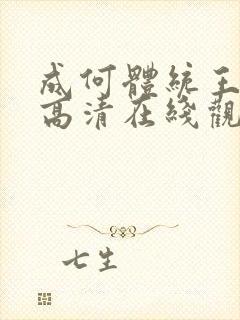 成何體統王
高清在綫觀
七生